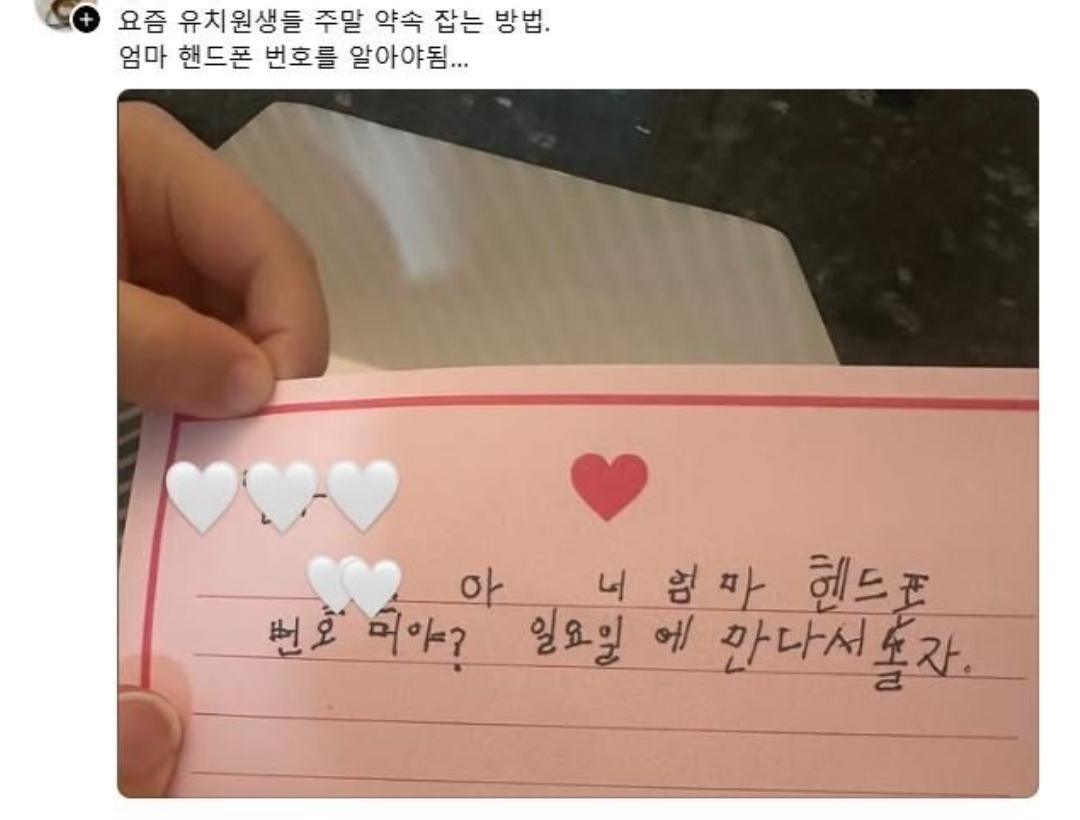 요즘 유치원생들 주말 약속 잡는 방법.
엄마 핸드폰 번호를 알아야됨...
아 너 엄마 헨드포
번호 머야? 일요일 에 만나서놀자.